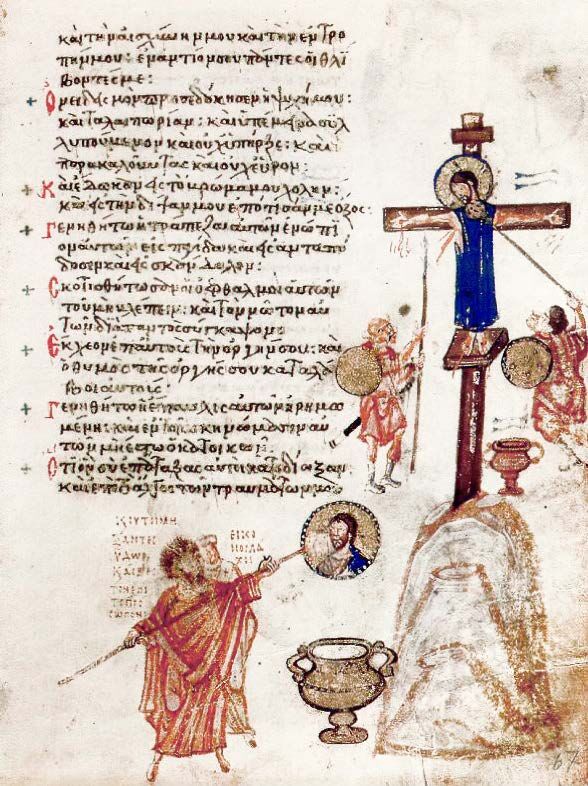 καὶ τὴν αἰσχύνην μου καὶ τὴν ἐντρο
πήν μου: ἐναντίον σου πάντες οἱ θλί
βοντές με:
Ὀνειδισμὸν προσεδόκησεν ἡ ψυχή μου:
καὶ ταλαιπωρίαν: καὶ ὑπέμεινα συλ
λυπούμενον καὶ οὐχ ὑπῆρξε: καὶ
παρακαλοῦντας καὶ οὐχ εὗρον:
Καὶ ἔδωκαν εἰς τὸ βρῶμά μου χολήν:
καὶ εἰς τὴν δίψαν μου ἐπότισάν με ὄξος:
Γενηθήτω ἡ τράπεζα αὐτῶν ἐνώπι
ον αὐτῶν εἰς παγίδα καὶ εἰς ἀνταπό
δοσιν καὶ εἰς σκάνδαλον:
Σκοτισθήτωσαν οἱ ὀφθαλμοὶ αὐτῶν
τοῦ μὴ βλέπειν: καὶ τὸν νῶτον αὐ
τῶν διὰ παντὸς σύγκαμψον:
Ἔκχεον ἐπ' αὐτοὺς τὴν ὀργήν σου: καὶ
ὁ θυμὸς τῆς ὀργῆς σου καταλά
βοι αὐτούς:
Γενηθήτω ἡ ἔπαυλις αὐτῶν ἠρημω
μένη: καὶ ἐν τοῖς σκηνώμασιν αὐ
τῶν μὴ ἔστω ὁ κατοικῶν:
Ὅτι ὃν σὺ ἐπάταξας αὐτοὶ κατεδίωξαν:
καὶ ἐπὶ τὸ ἄλγος τῶν τραυμάτων μου
Κ ΟΥΤΟΙ ΜΗ
ΞΑΝΤΕΣ
ΥΔΩΡ
ΤΟ ΠΡΟ
ΣΩΠΟΝ
ΕΙΚΟ
ΝΟΜΑ
ΧΟΙ
67